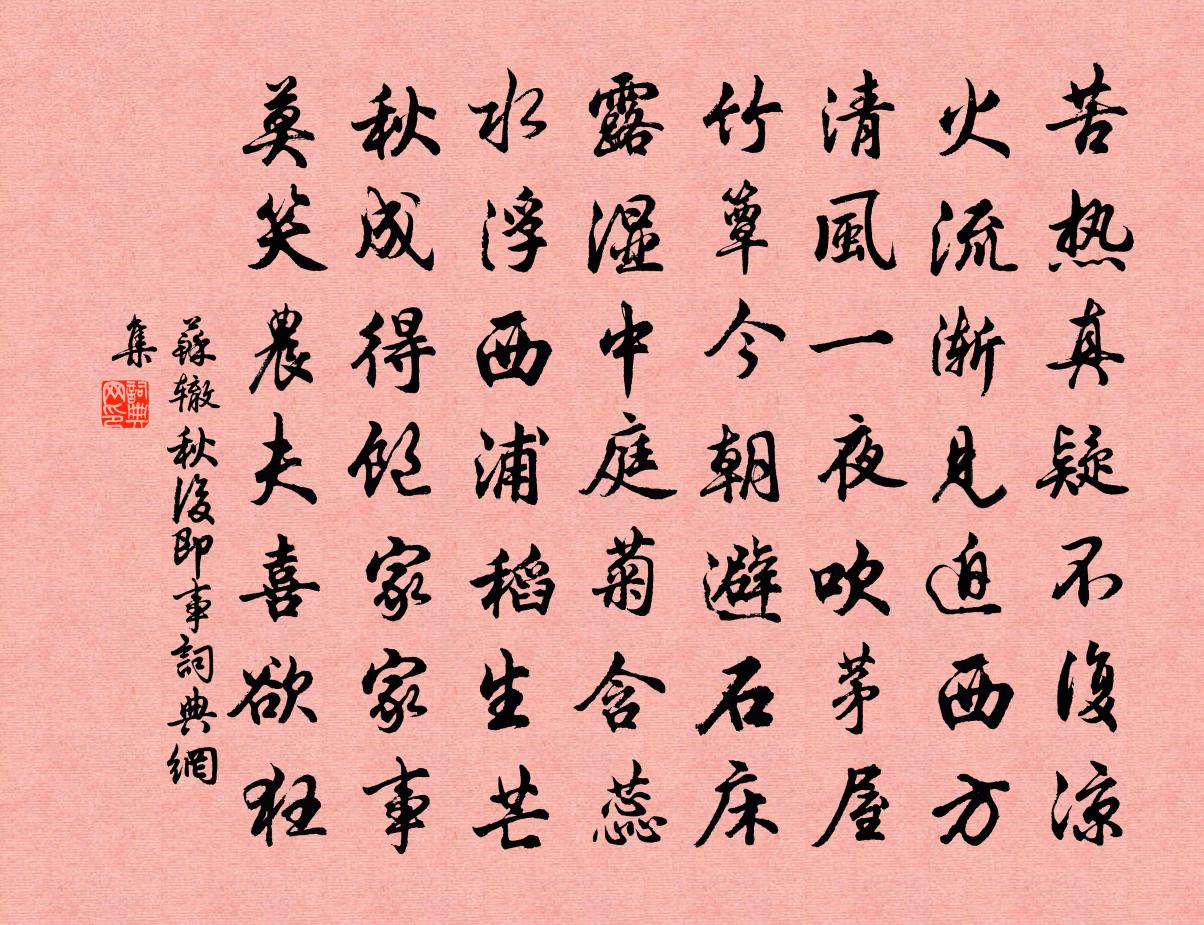 苦热真疑不復凉
火流渐見迫西方
清風一夜吹茅屋
竹簟今朝避石床
露湿中庭菊含蕊
水浮西浦稻生芒
秋成得飽家家事
莫笑農夫喜欲狂
蘇辙秋後即事詞典網
集
詞典
网印